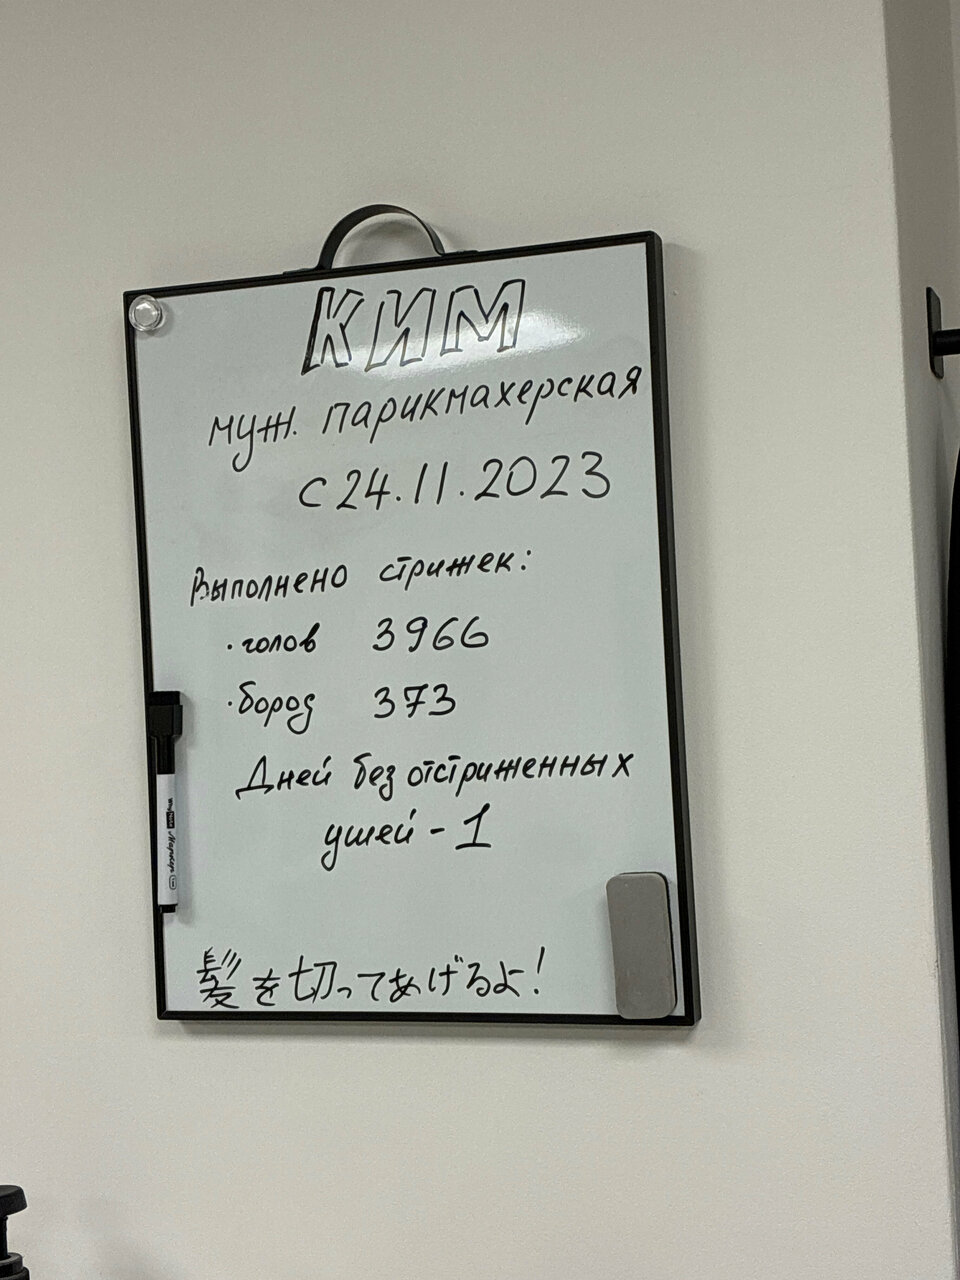 КИМ
муж. парикмахерская
с 24.11.2023
Выполнено стрижек:
·голов 3966
·бород 373
Дней без отстриженных
ушей - 1
髪を切ってあげるよ!
Маркер